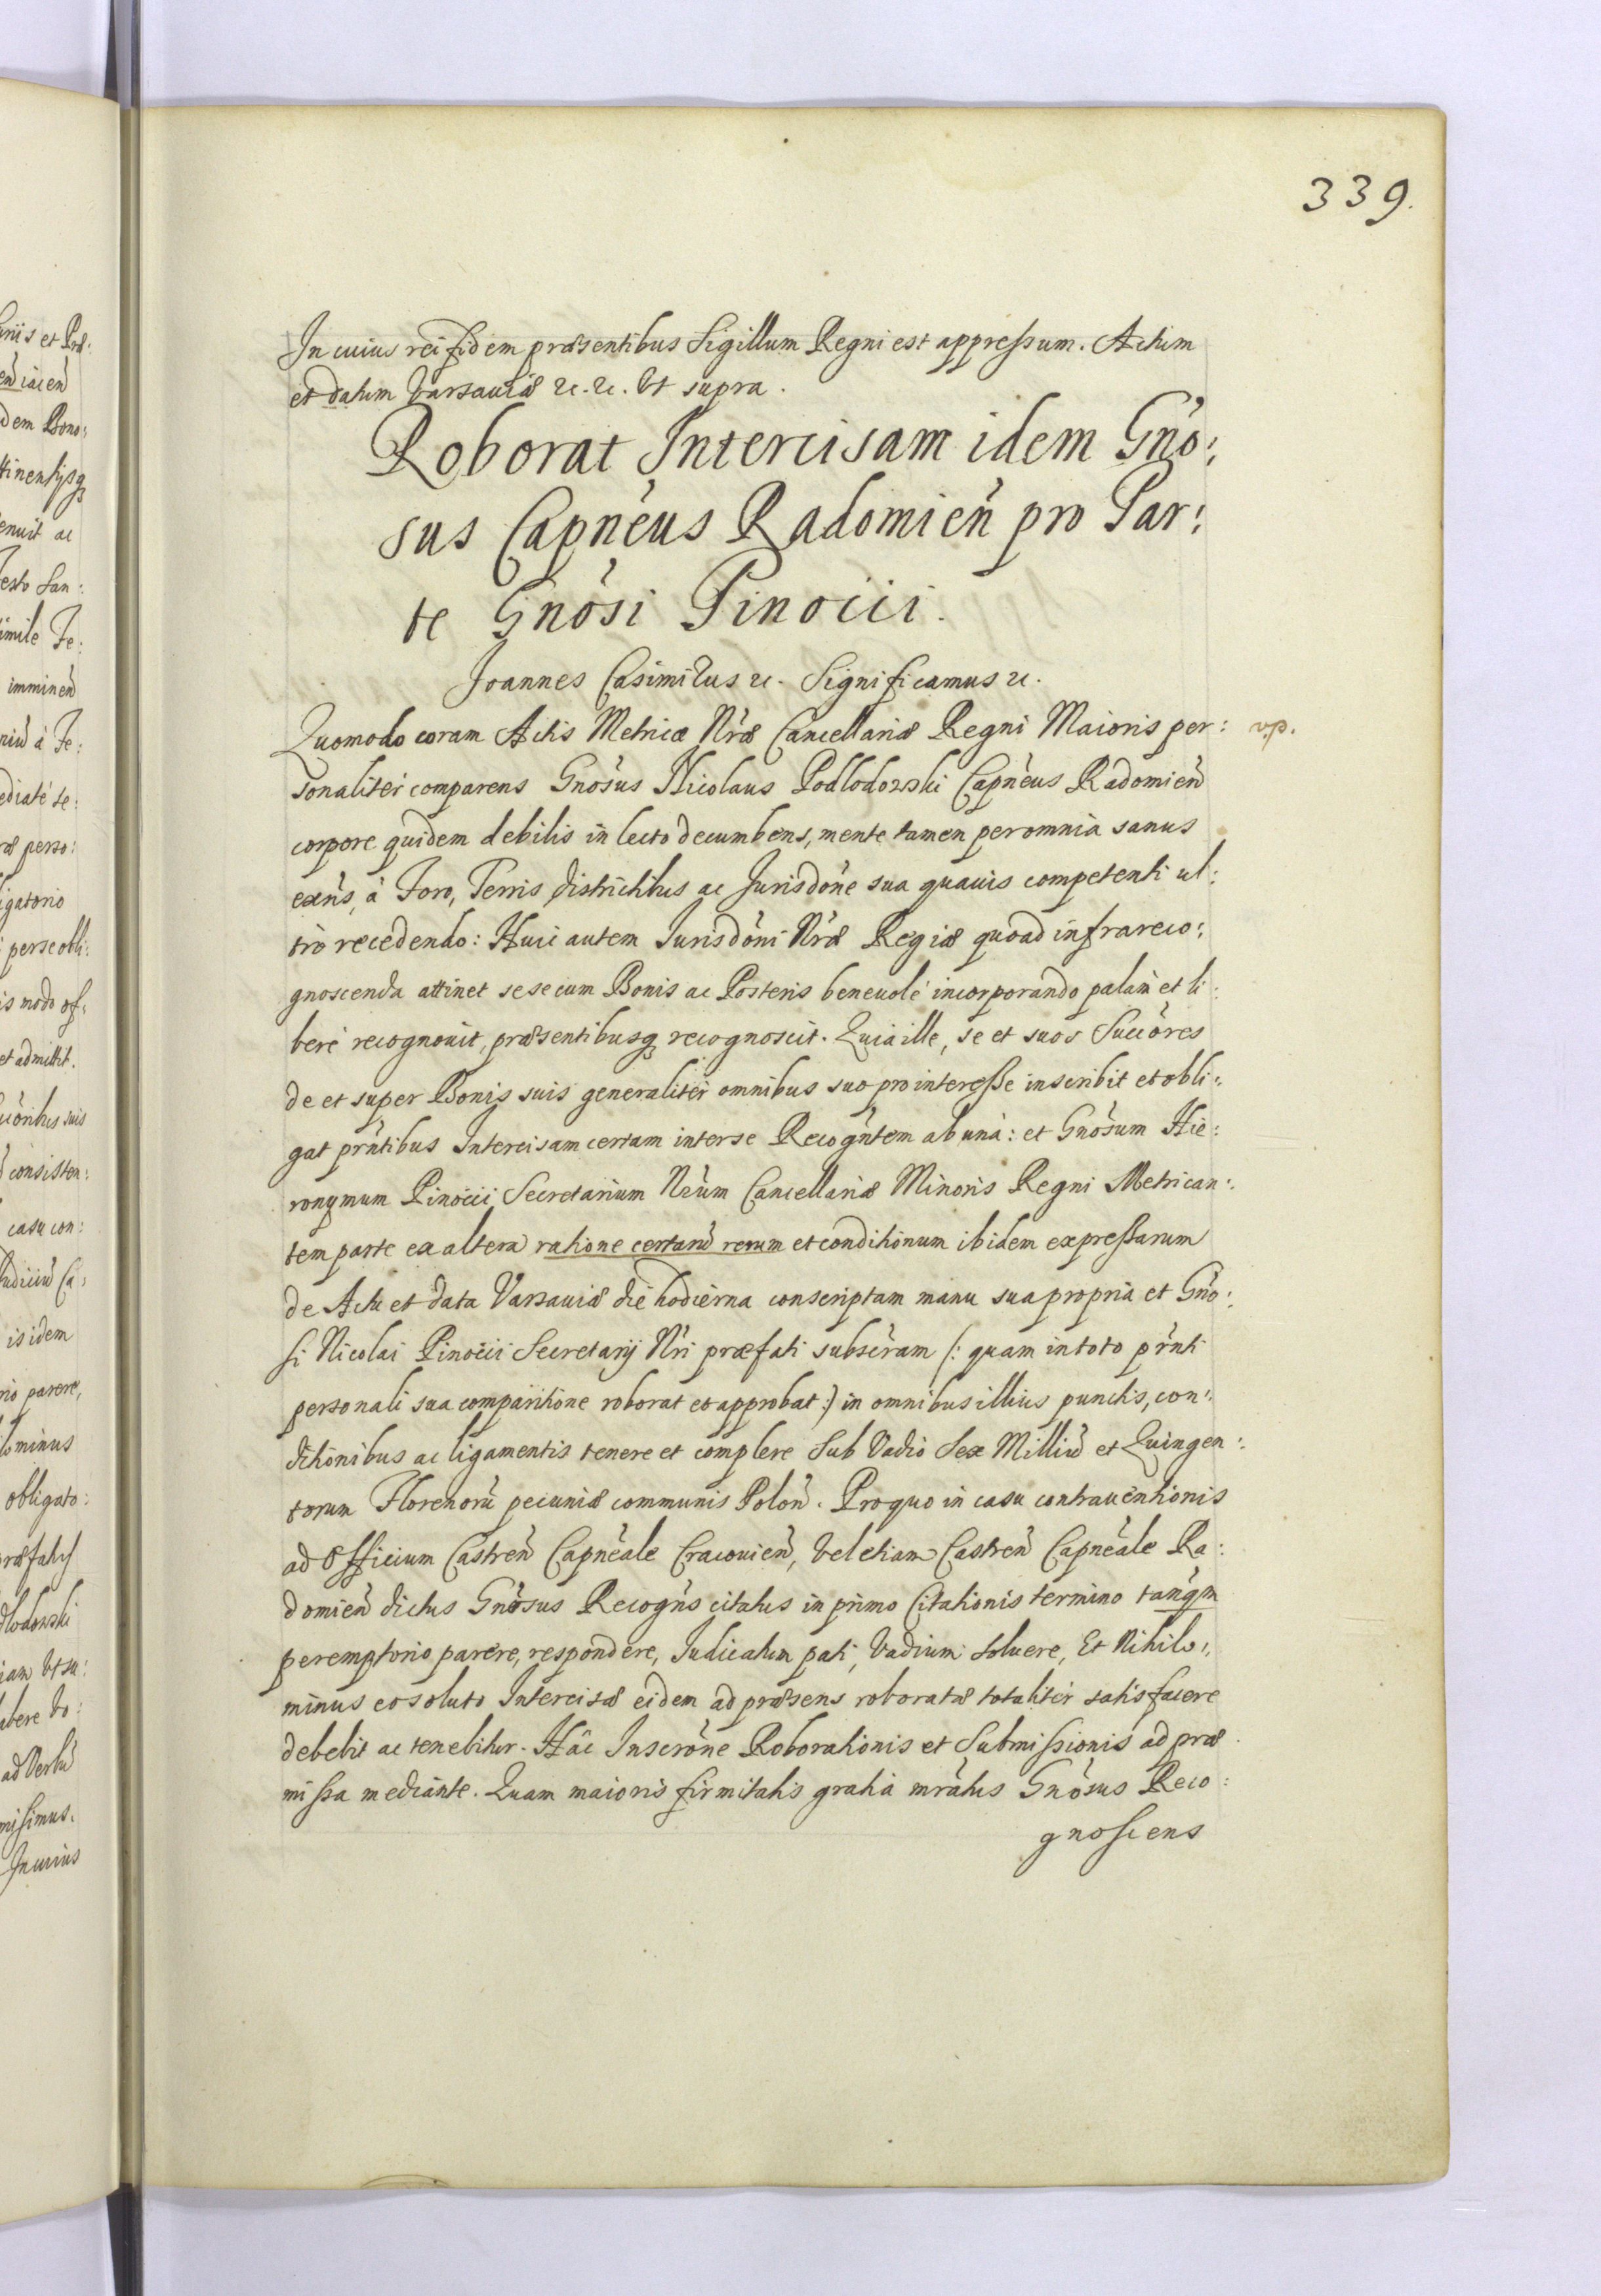 339.
In cuius rei fidem præsentibus Sigillum Regni est appressum. Actum
et datum Varsaviæ &c. &c. Vt supra.
Roborat Intercisam idem Gno:
sus Capneus Radomien pro Par:
te Gnosi Pinocii.
Joannes Casimirus &c. Significamus &c.
Quomodo coram Actis Metricæ Nræ Cancellariæ Regni Maioris per: v.p.
sonaliter comparens Gnosus Nicolaus Podlodowski Capneus Radomien
corpore quidem debilis in lecto decumbens, mente tamen per omnia sanus
exns, à Foro, Terris districtibus ac Jurisdone sua quauis competenti ul:
tro recedendo: Huic autem Jurisdoni Nræ Regiæ quoad infrareco:
gnoscenda attinet sese cum Bonis ac Posteris beneuolé incorporando palam et li:
beré recognouit, præsentibusq recognoscit. Quia ille, se et suos Succores
de et super Bonis suis generaliter omnibus suo pro interesse inscribit et obli:
gat prntibus Intercisam certam inter se Recogntem ab unà: et Gnosum Hie:
ronymum Pinocci Secretarium Nrum Cancellariæ Minoris Regni Metrican:
tem parte ex altera ratione certaru rerum et conditionum ibidem expressarum
de Actu et data Varsauiæ die hodierna conscriptam manu sua propria et Gno:
si Nicolai Pinocci Secretarij Nri præfati subscram (: quam in toto prnti
personali sua comparitione roborat et approbat :) in omnibus illius punctis, con:
ditionibus ac ligamentis tenere et complere sub Vadio Sex Milliu et Quingen:
torum Florenoru pecuniæ communis Polon. Pro quo in casu contrauentionis
ad Officium Castren Capneale Cracouien, vel etiam Castren Capneale Ra:
domien dictus Gnosus Recogns citatus in primo Citationis termino tanqm
peremptorio parere, respondere, Judicatum pati, Vadium soluere, Et Nihilo:
minus eo soluto Intercisæ eidem ad præsens roboratæ totaliter satisfacere
debebit ac tenebitur. Hâc Inscrone Roborationis et Submissionis ad præ
missa mediante. Quam maioris firmitatis gratia mratus Gnosus Reco:
gnoscens